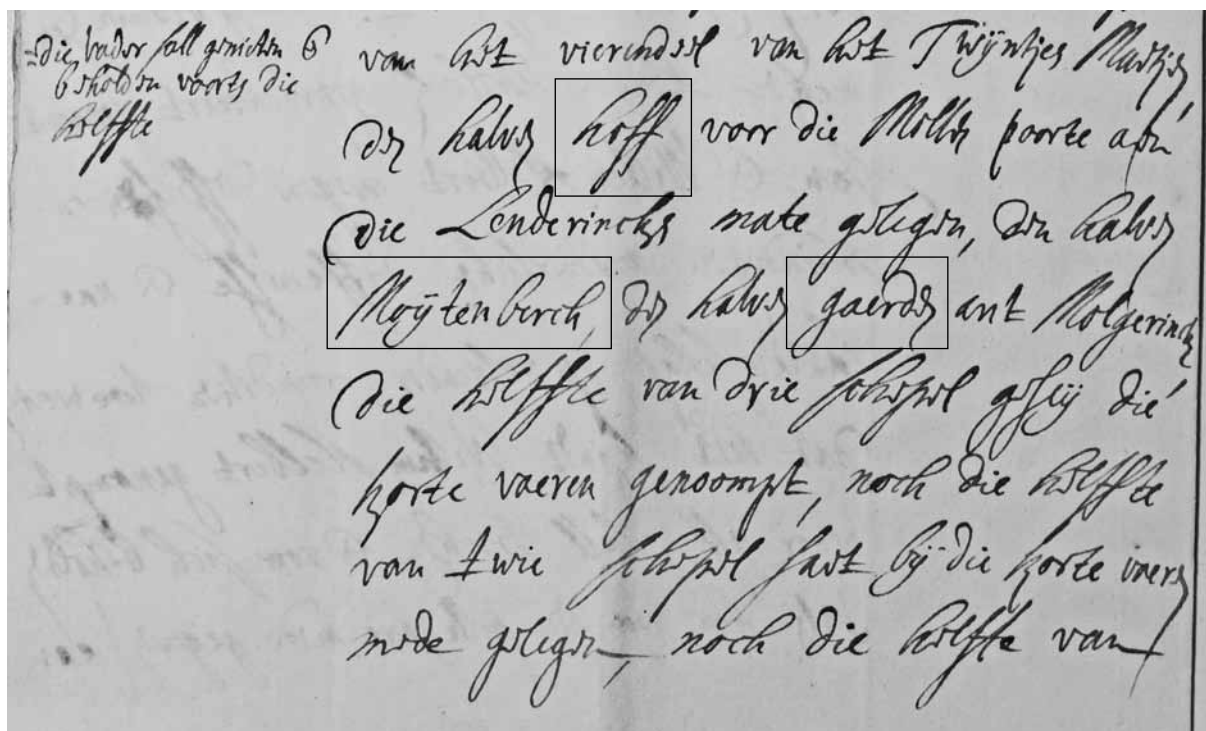 die vader sall genieten &
beholden voorts die
helffte
van het vierendeel van het Twijntjes Maetjen
den halven hoff voor die Mollen poorte aen
die Lenderincks mate gelegen, den halven
Moijtenberch, den halven gaerden ant Molgerinck
die helffte van drie schepel die
korte vaeren genoompt, noch die helffte
van twie schepel saet bij die korte vaeren
mede gelegen, noch die helfte van